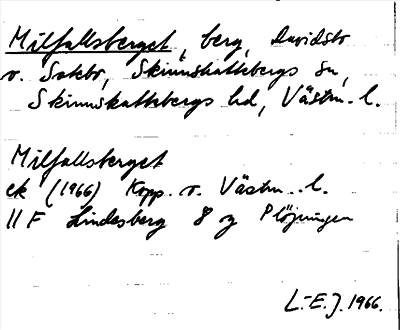 Milfallsberget, berg, Davidsbo
v. Satebo, Skinnskattebergs sn,
Skinnskattebergs hd, Västm. l.
Milfallsberget
ek (1966) Kopp. o. Västm. l.
11 F Lindesberg 8 g Plöjningen
L.-E. J. 1966.